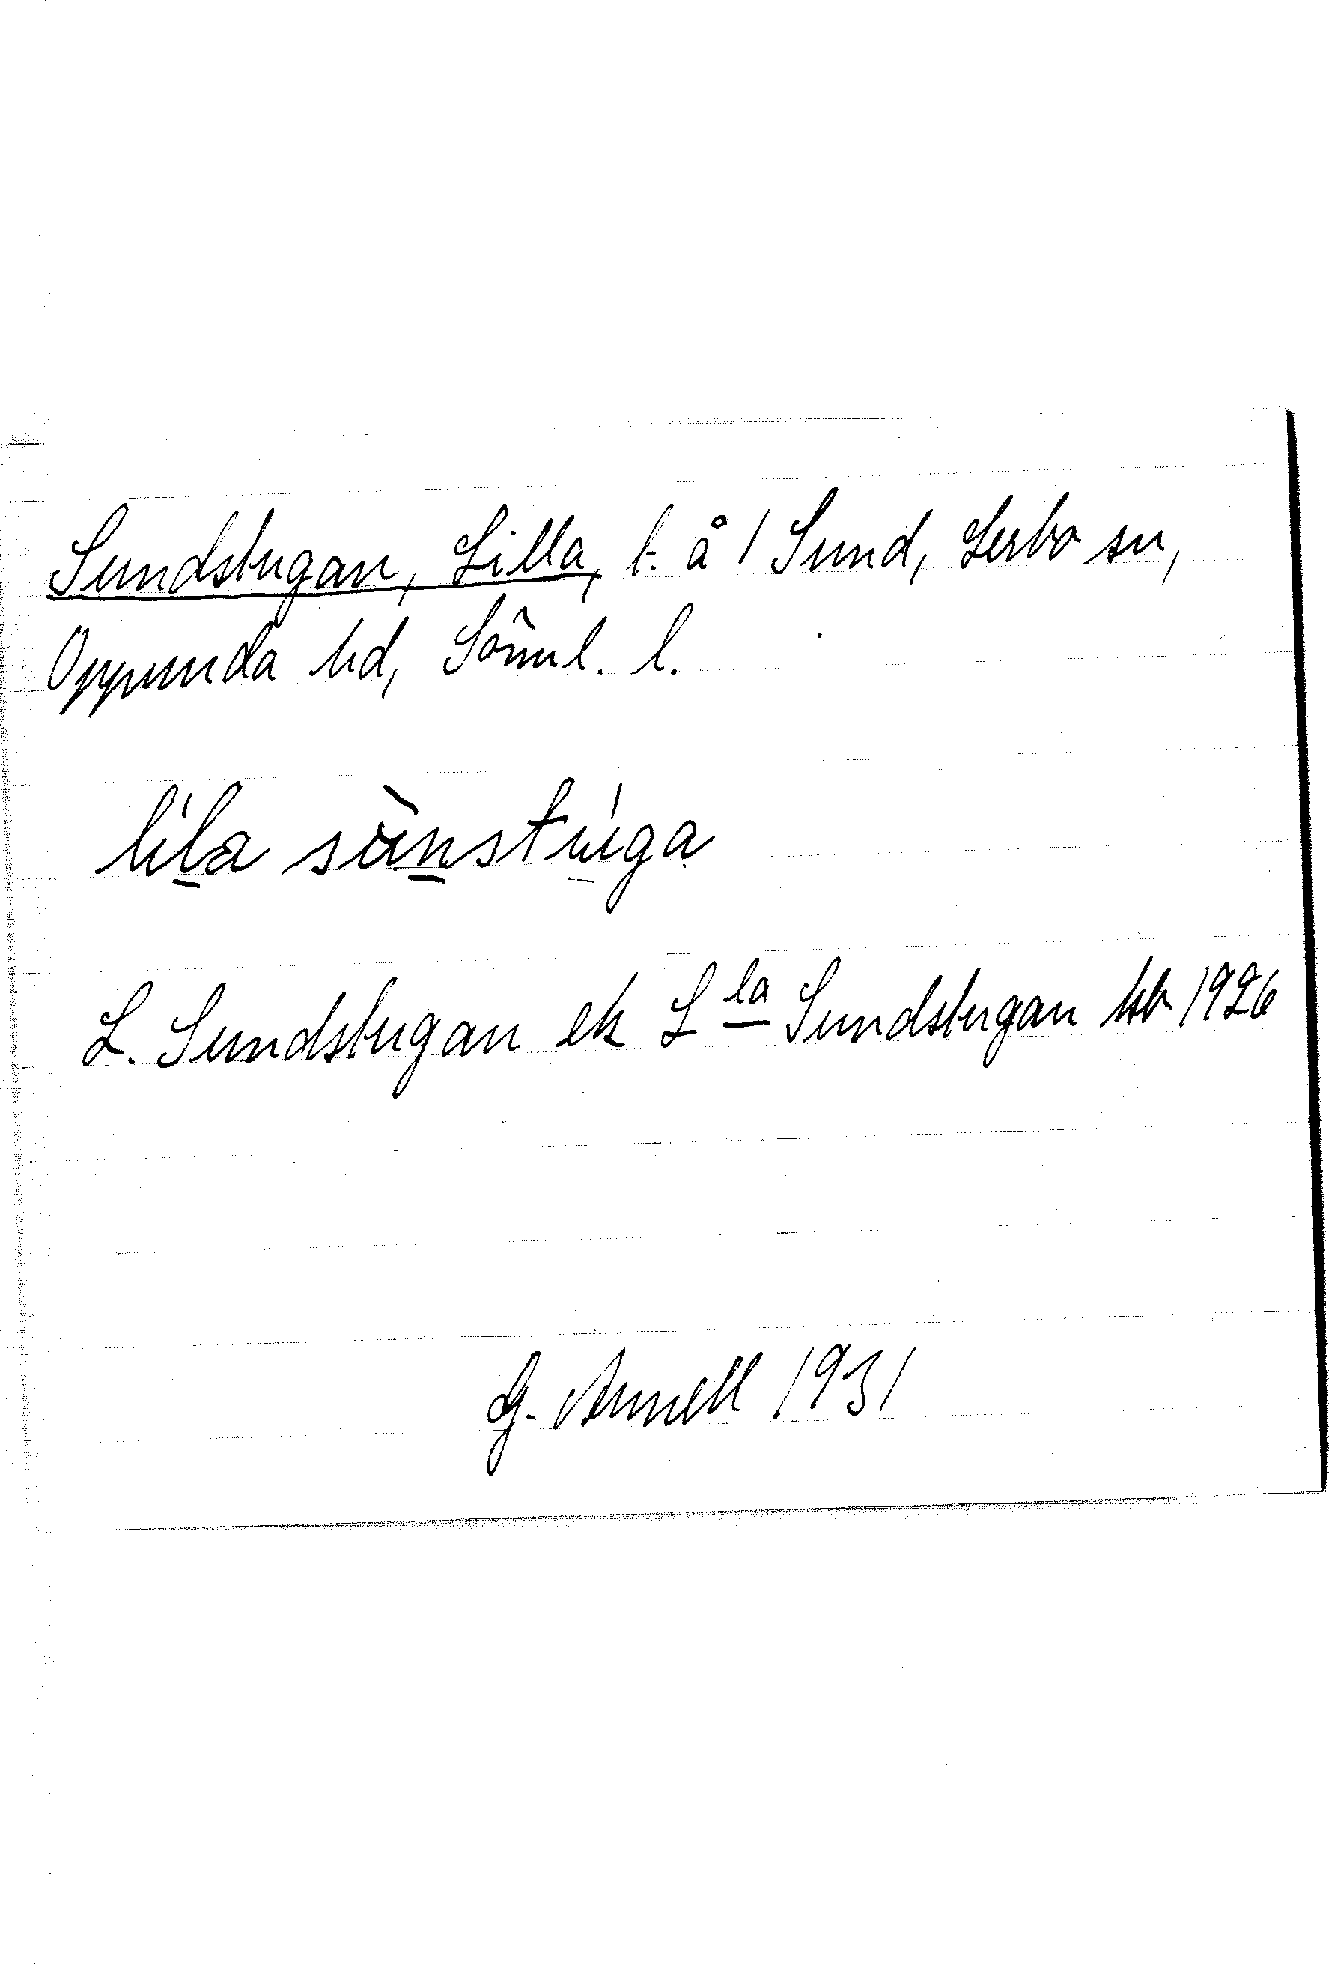 Sundstugan, Lilla, t. å / Sund, Lerbo sn,
Oppunda hd, Söml. l.
líl̲a sùn̲stúga
L. Sundstugan ek L la Sundstugan kb 1926
G. Annell 1931